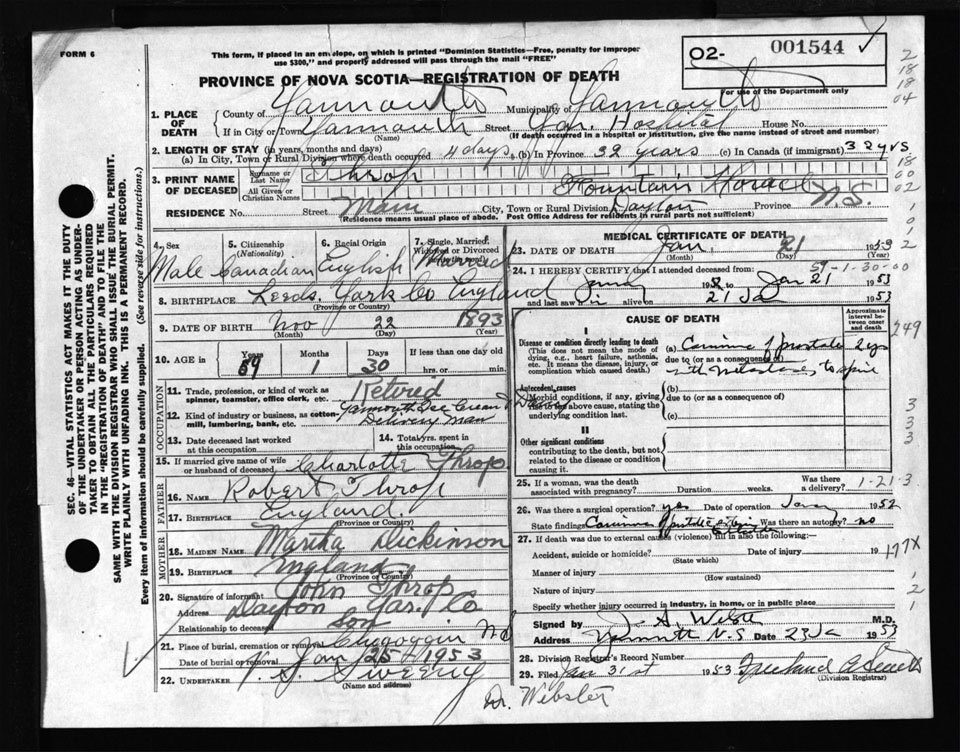 FORM 6
This form, if placed in an envelope, on which is printed "Dominion Statistics—Free, penalty for improper
use $300," and properly addressed will pass through the mail "FREE"
O2- 001544
For use of the Department only
PROVINCE OF NOVA SCOTIA—REGISTRATION OF DEATH
1. PLACE OF DEATH
County of Yarmouth Municipality of Yarmouth
If in City or Town Yarmouth Street Yar. Hospital House No.
(Name) (If death occurred in a hospital or institution, give the name instead of street and number)
2. LENGTH OF STAY (in years, months and days)
(a) In City, Town or Rural Division where death occurred 4 days (b) In Province 32 years (c) In Canada (if immigrant) 32 yrs
3. PRINT NAME OF DECEASED
Surname or Last Name Throp
All Given or Christian Names Fountain Horace
RESIDENCE No. Street Main City, Town or Rural Division Dayton Province N.S.
(Residence means usual place of abode. Post Office Address for residents in rural parts not sufficient)
4. Sex Male
5. Citizenship (Nationality) Canadian
6. Racial Origin English
7. Single, Married, Widowed or Divorced Married
8. BIRTHPLACE Leeds, York Co England
(Province or Country)
9. DATE OF BIRTH Nov 22 1893
(Month) (Day) (Year)
10. AGE in Years 59 Months 1 Days 30 If less than one day old
hrs. or min.
OCCUPATION
11. Trade, profession, or kind of work as spinner, teamster, office clerk, etc. Retired
12. Kind of industry or business, as cotton-mill, lumbering, bank, etc. Yarmouth Ice Cream
Delivery Man
13. Date deceased last worked at this occupation
14. Total yrs. spent in this occupation
15. If married give name of wife or husband of deceased Charlotte Throp
FATHER
16. NAME Robert Throp
17. BIRTHPLACE England
(Province or Country)
MOTHER
18. MAIDEN NAME Martha Dickinson
19. BIRTHPLACE England
(Province or Country)
20. Signature of informant John Throp
Address Dayton Yar. Co
Relationship to deceased son
21. Place of burial, cremation or removal Chegoggin N.S.
Date of burial or removal Jan 25th 1953
22. UNDERTAKER V. S. Sweeny
(Name and address)
MEDICAL CERTIFICATE OF DEATH
23. DATE OF DEATH Jan. 21 1953
(Month) (Day)
24. I HEREBY CERTIFY that I attended deceased from:
59-1-30-00
Jan 21 1953
and last saw him alive on 21 Ja 1953
CAUSE OF DEATH
Approximate interval between onset and death
I
Disease or condition directly leading to death
(This does not mean the mode of dying, e.g., heart failure, asthenia, etc. It means the disease, injury, or complication which caused death.)
(a) Carcinoma of prostate 2 yrs
due to (or as a consequence of)
with metastases to spine
Antecedent causes
Morbid conditions, if any, giving rise to the above cause, stating the underlying condition last.
(b)
due to (or as a consequence of)
(c)
II
Other significant conditions
contributing to the death, but not related to the disease or condition causing it.
25. If a woman, was the death associated with pregnancy? Duration weeks. Was there a delivery? 1-21-3
26. Was there a surgical operation? yes Date of operation 1952
State findings Carcinoma Was there an autopsy? no
27. If death was due to external causes (violence) fill in also the following:—
Accident, suicide or homicide? Date of injury 19
(State which)
177X
Manner of injury
(How sustained)
Nature of injury
Specify whether injury occurred in industry, in home, or in public place
Signed by J. A. Webster M.D.
Address Yarmouth N.S Date 23 Ja 1953
28. Division Registrar's Record Number
29. Filed Jan 31st 1953
(Division Registrar)
Dr. Webster
SEC. 46—VITAL STATISTICS ACT MAKES IT THE DUTY
OF THE UNDERTAKER OR PERSON ACTING AS UNDER-
TAKER TO OBTAIN ALL THE PARTICULARS REQUIRED
IN THE "REGISTRATION OF DEATH" AND TO FILE THE
SAME WITH THE DIVISION REGISTRAR WHO SHALL ISSUE THE BURIAL PERMIT.
WRITE PLAINLY WITH UNFADING INK. THIS IS A PERMANENT RECORD.
Every item of information should be carefully supplied. (See reverse side for instructions.)
2
18
18
04
18
00
02
749
3
3
3
1
2
1